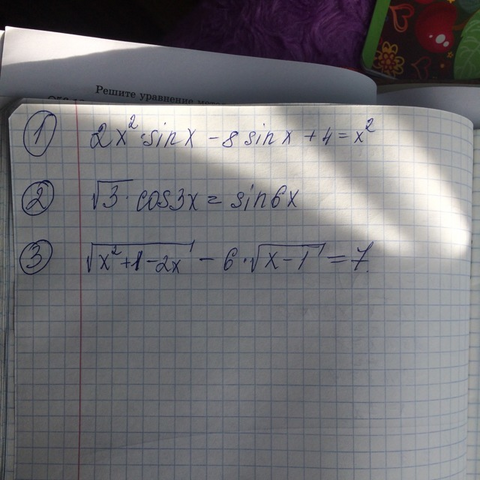 Решите уравнение
① 2x²·sinx - 8sinx + 4 = x²
② √3·cos3x = sin6x
③ √(x²+1-2x) - 6·√(x-1) = 7.